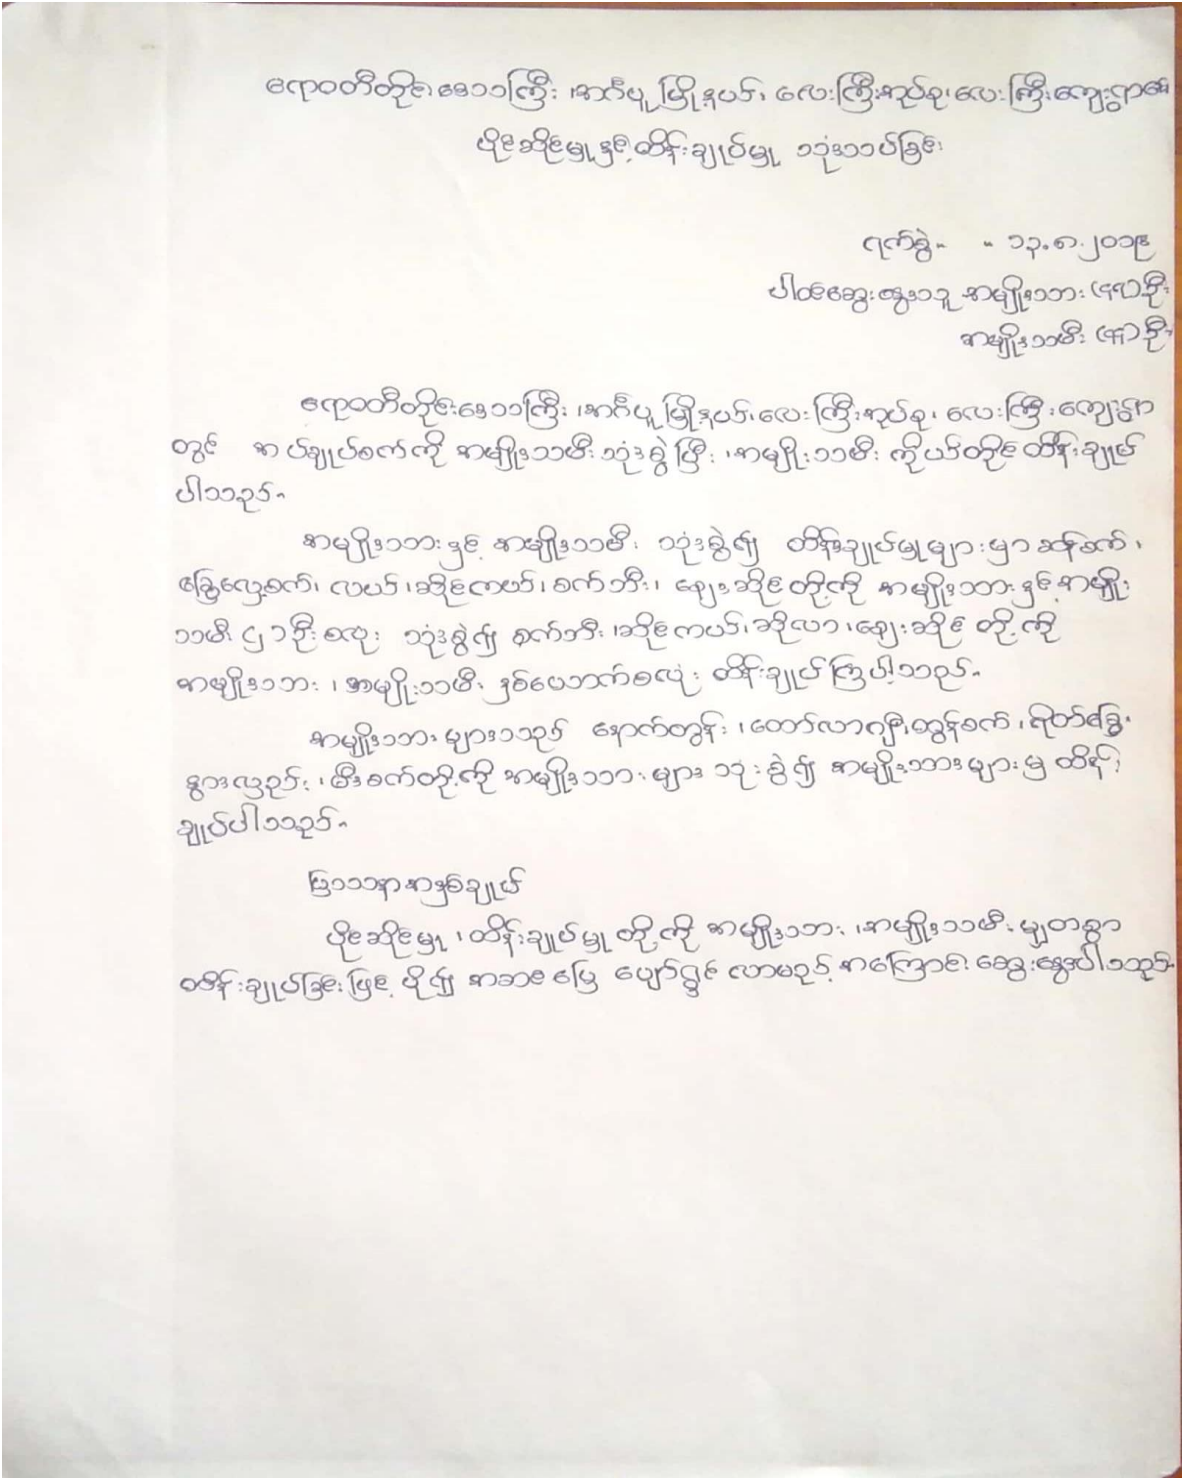 ဧရာဝတီတိုင်းဒေသကြီး၊ အင်္ဂပူမြို့နယ်၊ လေးကြီးအုပ်စု၊ လေးကြီးကျေးရွာ၏
ပိုင်ဆိုင်မှုနှင့် ထိန်းချုပ်မှု သုံးသပ်ခြင်း
ရက်စွဲ။ ။ ၁၃.၈.၂၀၁၉
ပါဝင်ဆွေးနွေးသူ အမျိုးသား ဦး
အမျိုးသမီး ဦး
ဧရာဝတီတိုင်းဒေသကြီး၊ အင်္ဂပူမြို့နယ်၊ လေးကြီးအုပ်စု၊ လေးကြီးကျေးရွာ
တွင် အပ်ချုပ်စက်ကို အမျိုးသမီး သုံးစွဲပြီး၊ အမျိုးသမီး ကိုယ်တိုင် ထိန်းချုပ်
ပါသည်။
အမျိုးသားနှင့် အမျိုးသမီး သုံးစွဲ၍ ထိန်းချုပ်မှုများမှာ ဆန်စက်၊
ခြွေလှေ့စက်၊ လယ်၊ ဆိုင်ကယ်၊ စက်ဘီး၊ ဈေးဆိုင် တို့ကို အမျိုးသားနှင့် အမျိုး
သမီး ၄၁ဦးစလုံး သုံးစွဲ၍ စက်ဘီး၊ ဆိုင်ကယ်၊ ဆိုလာ၊ ဈေးဆိုင် တို့ကို
အမျိုးသား၊ အမျိုးသမီး နှစ်ဖက်စလုံး ထိန်းချုပ်ကြပါသည်။
အမျိုးသားများသည် နောက်တွန်း၊ တော်လာဂျီ၊ ထွန်စက်၊ ရိတ်ခြွေ၊
နွားလှည်း၊ မီးစက်တို့ကို အမျိုးသားများ သုံးစွဲ၍ အမျိုးသားများမှ ထိန်း
ချုပ်ပါသည်။
ပြဿနာအနှစ်ချုပ်
ပိုင်ဆိုင်မှု၊ ထိန်းချုပ်မှု တို့ကို အမျိုးသား၊ အမျိုးသမီး မျှတစွာ
ထိန်းချုပ်ခြင်းဖြင့် ပို၍ အဆင်ပြေ ပျော်ရွှင် လာမည့် အကြောင်း ဆွေးနွေးပါသည်။